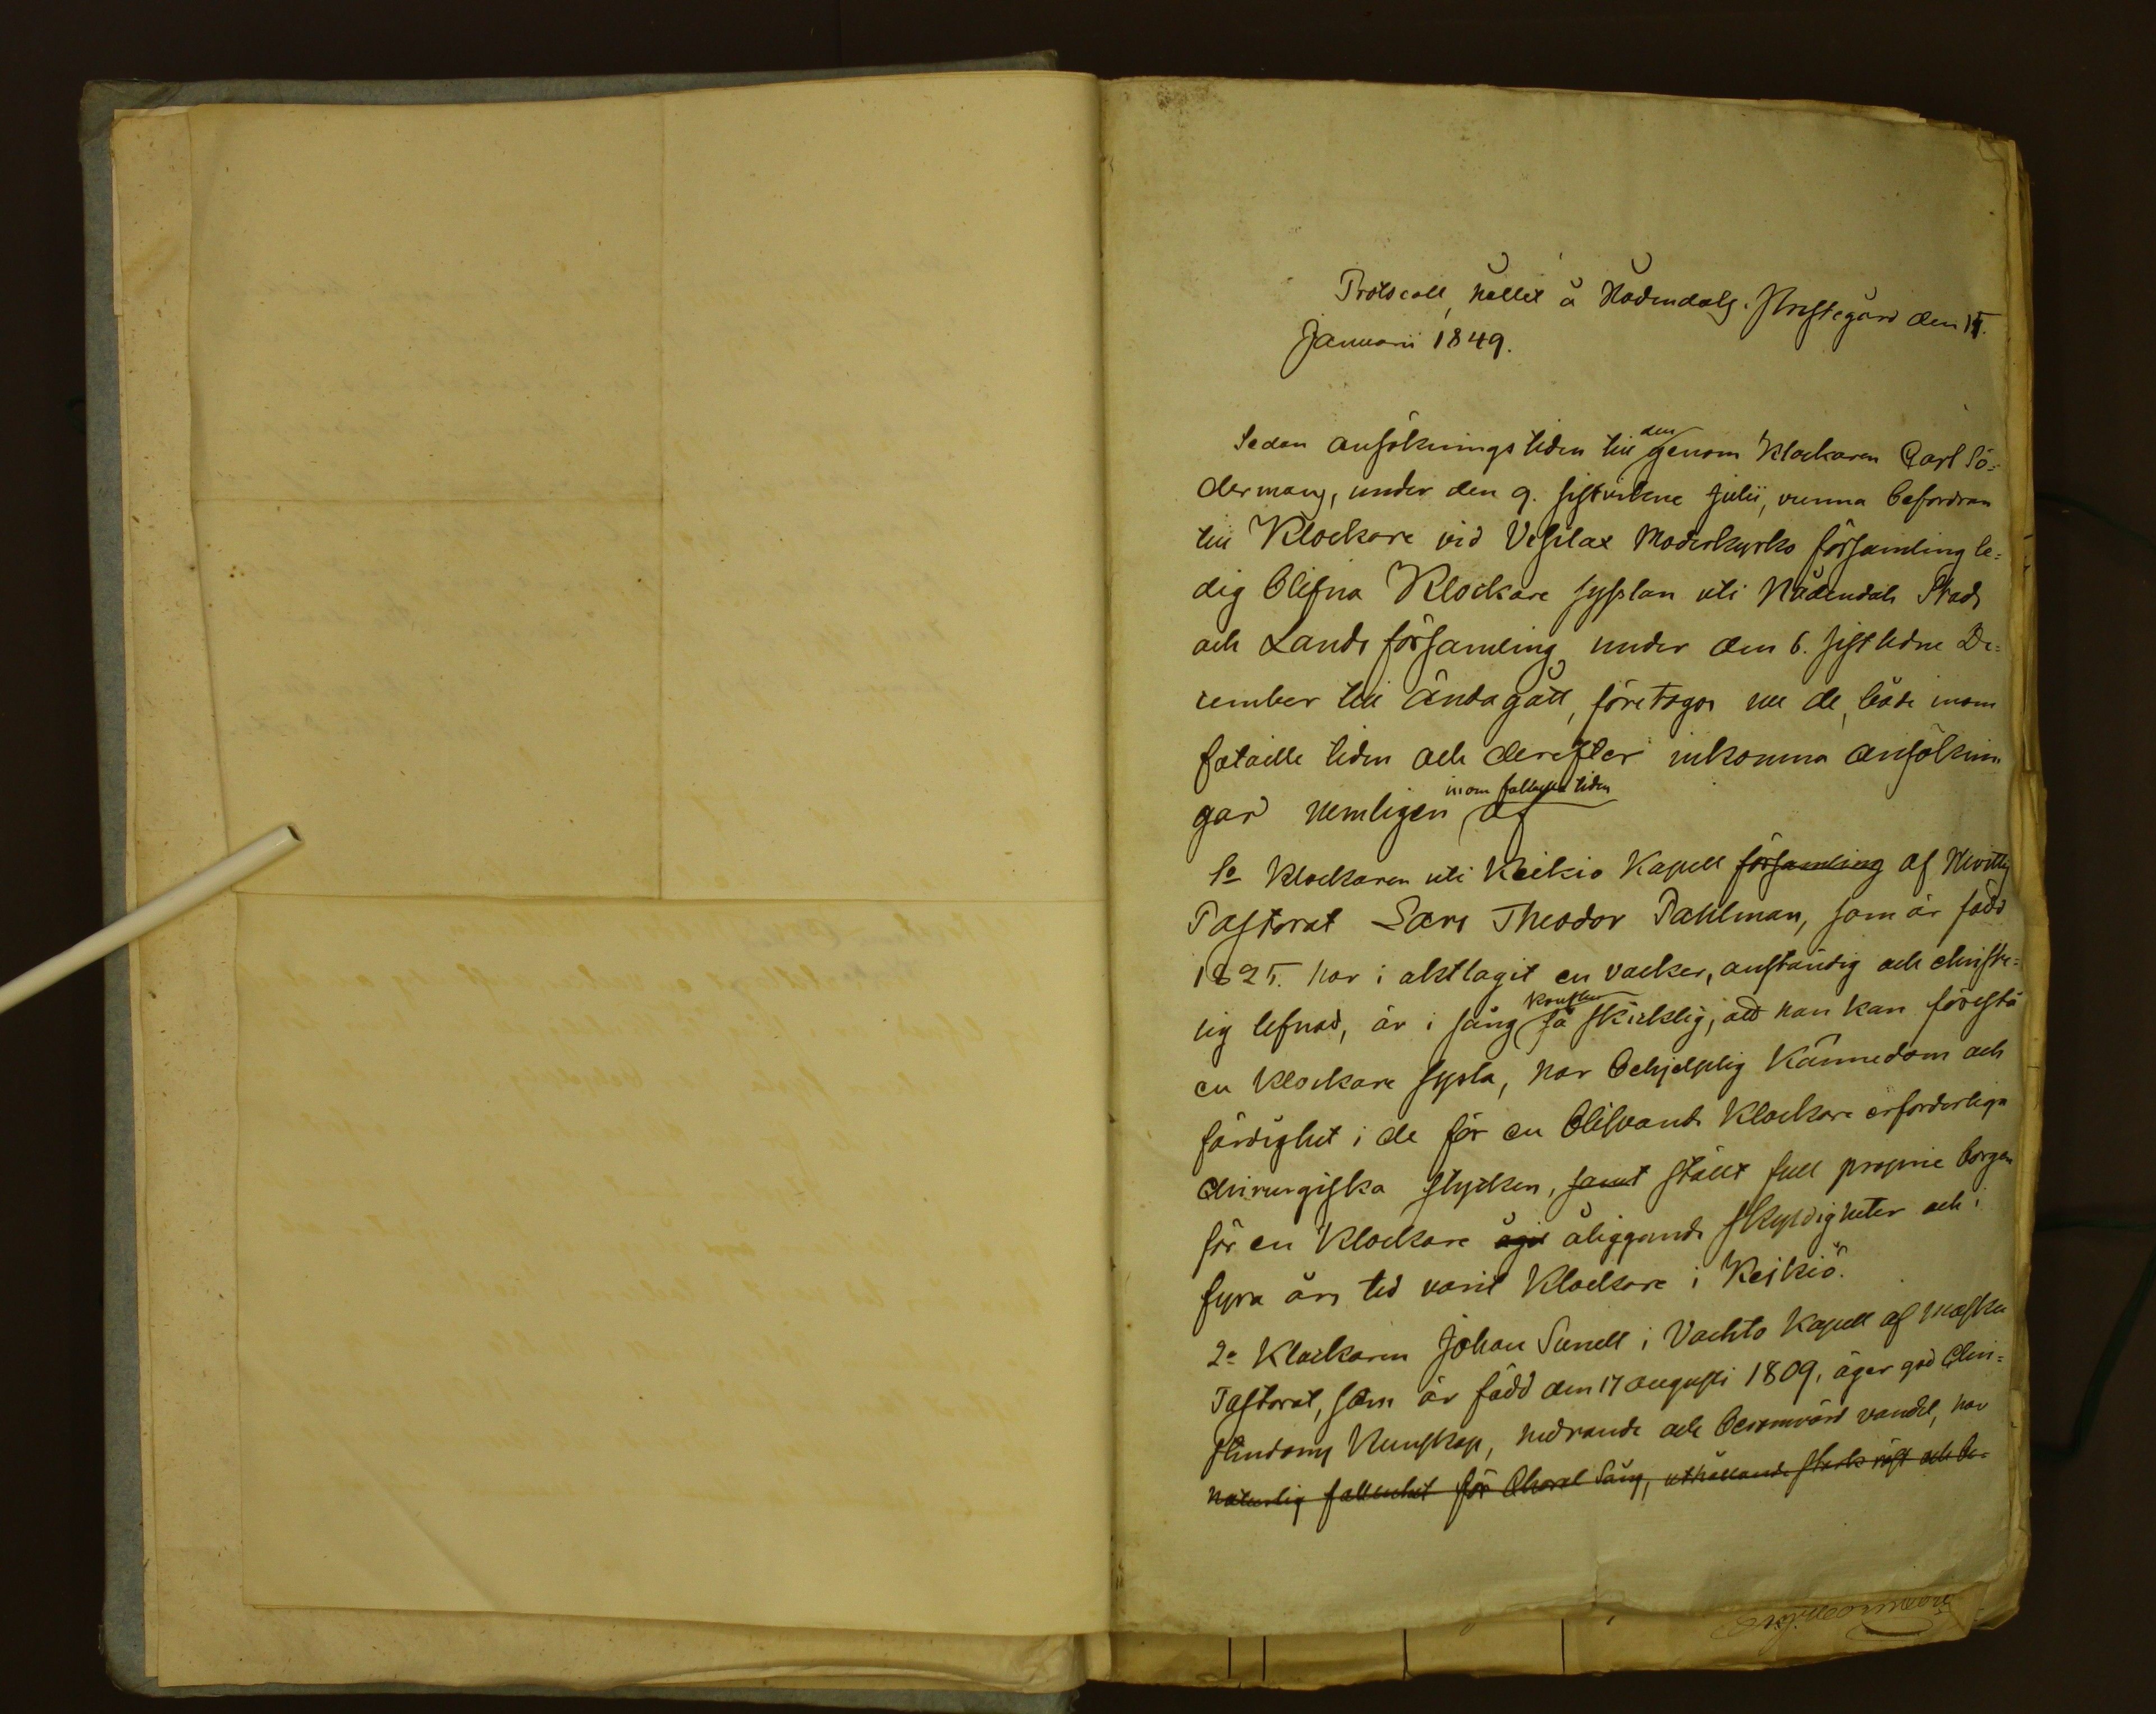 Protocoll, hållit å Nådendals Prestegård den
Januarii 1849.
Sedan ansökningstiden till den genom Klockaren Carl Sö=
dermans, under den 9. sistvikne Julii, vunna befordran
till Klockare vid Vesilax Moderkyrko församling le=
dig blifna Klockare sysslan uti Nådendals Stads
och Lands församling under den 6. sistledne De=
cember till ända gått, företogos nu de, både inom
fataille tiden och derefter inkomna ansöknin
gar nemligen inom fataille tiden af
1o Klockaren uti Keikio Kapell församling af
Pastorat Lars Theodor Dahlman, som är född
1825. har i akttagit en vacker, anständig och christe=
lig lefnad, är i sång konsten så skicklig, att han kan förestå
en Klockare syssla, har behjelplig Kännedom och
färdighet i de för en blifvande Klockare erforderliga
Chirurgiska stycken, samt ställt full proprie borgen
för en Klockare åliggande skyldigheter och i
fyra års tid varit Klockare i Keikiö.
2o Klockaren Johan Sunell i Vachto Kapell af Masku
Pastorat, som är född den 17 augusti 1809, äger god Chri=
stendoms Kunskap, hedrande och berömvärd vandel, har
naturlig fallenhet för Choral Sång, uthållande stark röst och be=